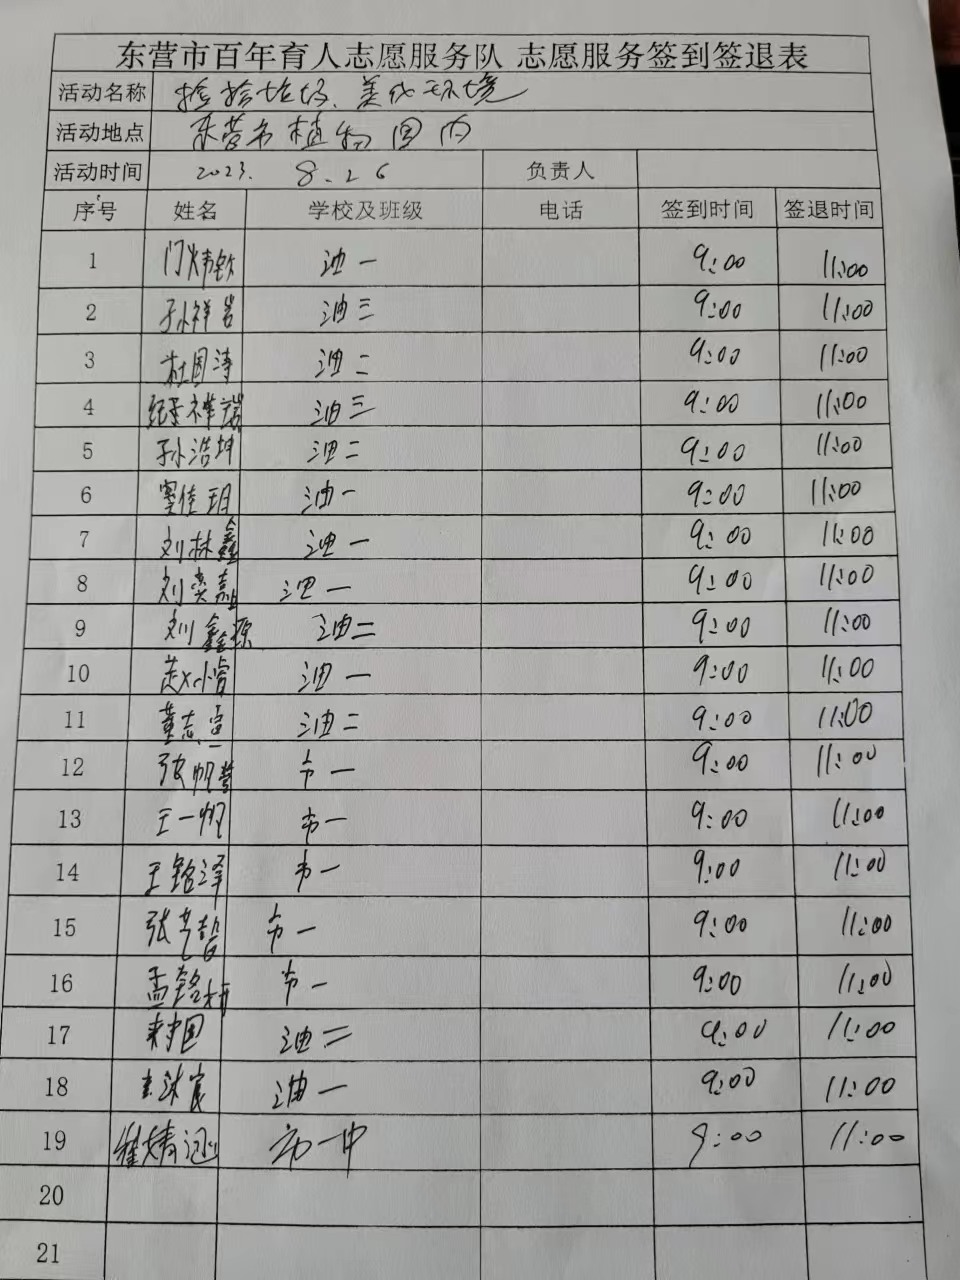 东营市百年育人志愿服务队 志愿服务签到签退表
活动名称 捡拾垃圾、美化环境
活动地点 东营市植物园内
活动时间 2023. 8.26 负责人
序号 姓名 学校及班级 电话 签到时间 签退时间
1 门炜钦 油一 9:00 11:00
2 孙祥岩 油三 9:00 11:00
3 杜国涛 油二 9:00 11:00
4 纪祥瑞 油三 9:00 11:00
5 孙浩坤 油二 9:00 11:00
6 窦佳玥 油一 9:00 11:00
7 刘林鑫 油一 9:00 11:00
8 刘奕嘉 油一 9:00 11:00
9 刘鑫源 油二 9:00 11:00
10 赵小睿 油一 9:00 11:00
11 董志 油二 9:00 11:00
12 张帆 市一 9:00 11:00
13 王一帆 市一 9:00 11:00
14 王铭泽 市一 9:00 11:00
15 张艺 市一 9:00 11:00
16 孟铭 市一 9:00 11:00
17 油二 9:00 11:00
18 油一 9:00 11:00
19 婧 一中 9:00 11:00
20
21